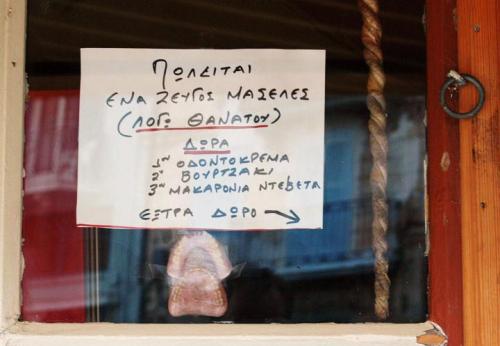 ΠΩΛΕΙΤΑΙ
ΕΝΑ ΖΕΥΓΟΣ ΜΑΣΕΛΕΣ
(ΛΟΓΩ ΘΑΝΑΤΟΥ)
ΔΩΡΑ
1ον ΟΔΟΝΤΟΚΡΕΜΑ
2ον ΒΟΥΡΤΖΑΚΙ
3ον ΜΑΚΑΡΟΝΙΑ ΝΤΕΒΕΤΑ
ΕΞΤΡΑ ΔΩΡΟ →